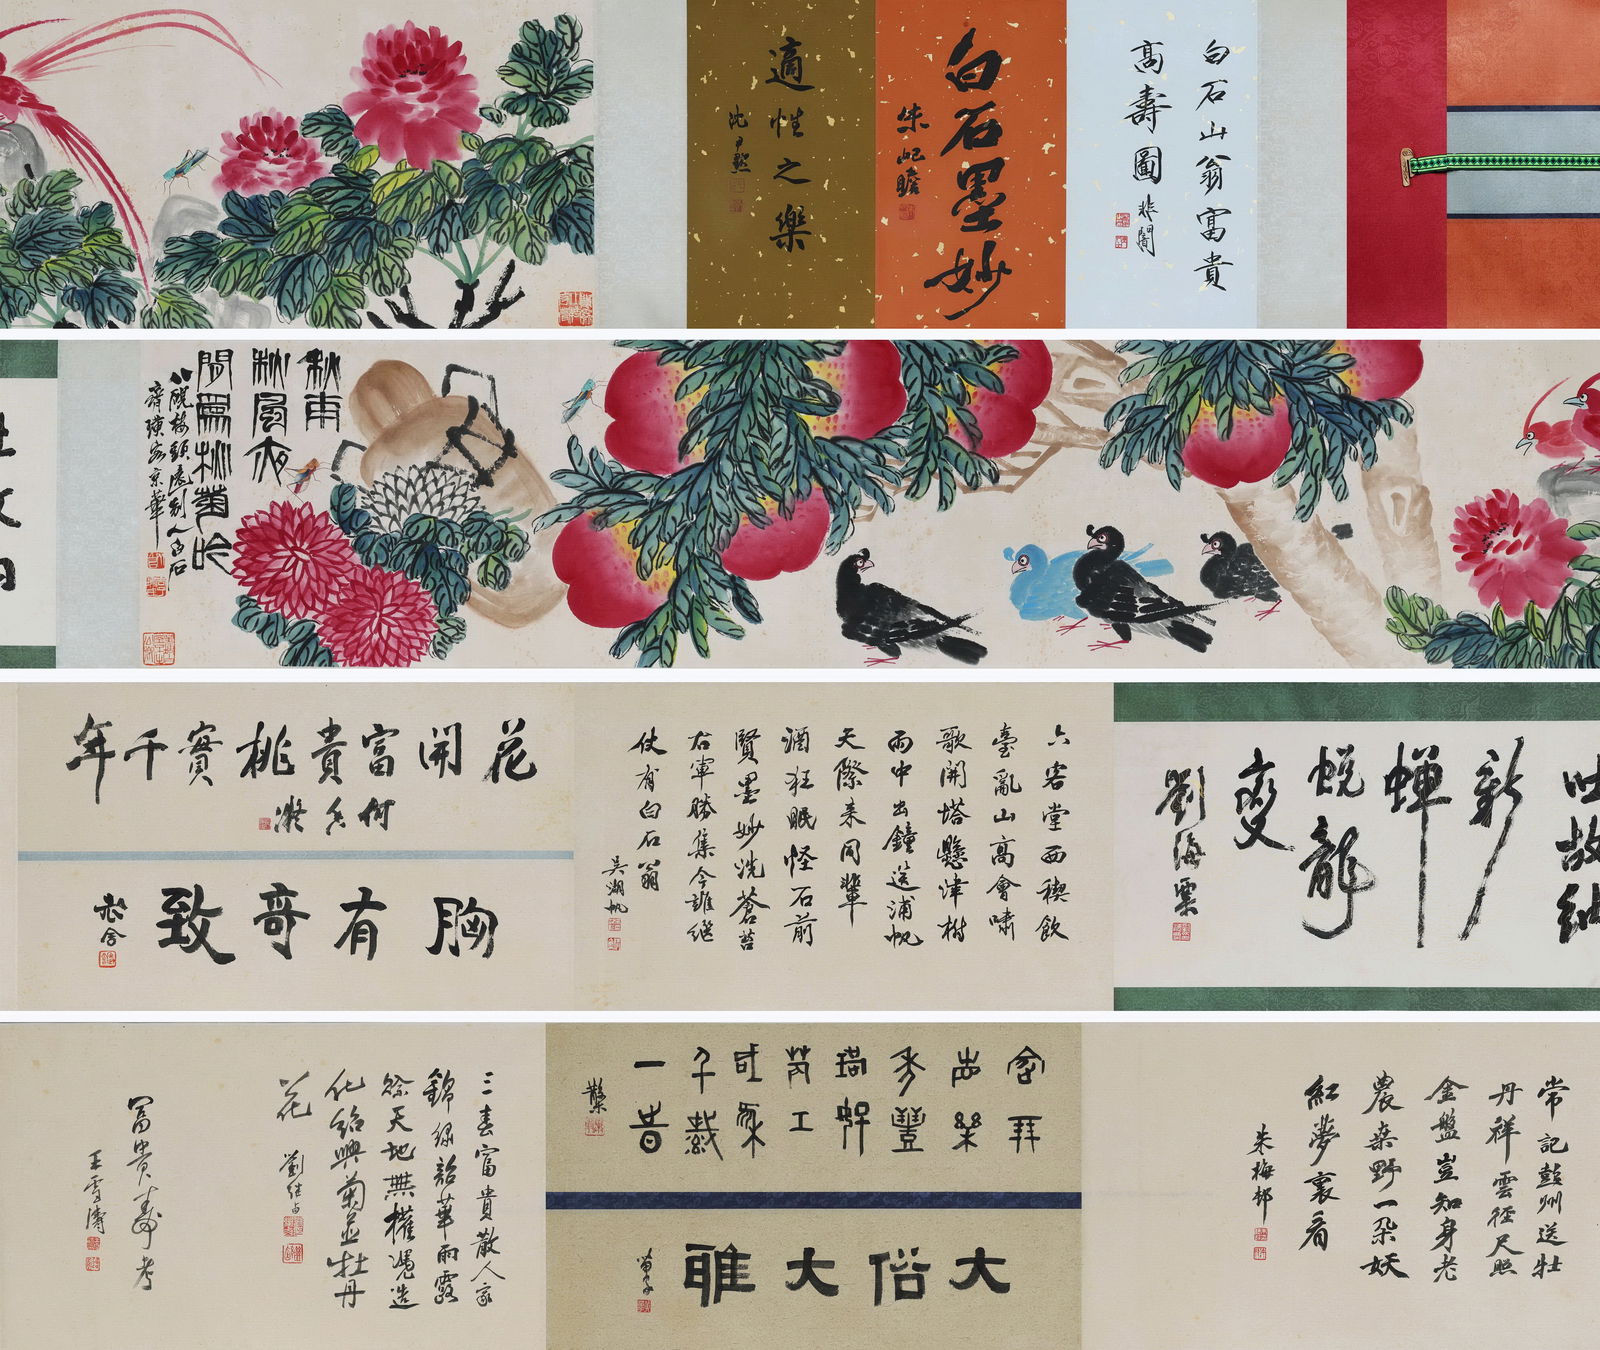 白石山翁富貴
高壽圖
非闇
白石墨妙
朱屺瞻
適性之樂
沈尹默
秋雨
秋風夜
間爲秋菊吟
八硯樓頭遠刻人白石
齊璜客京華
吐故納
新
蟬
蛻龍
變
劉海粟
六客堂西稧飲
臺亂山高會嘯
歌開塔懸津樹
雨中出鐘送浦帆
天際來同輩
酒狂眠怪石前
賢墨妙洗蒼苔
右軍勝集今誰繼
仗有白石翁
吳湖帆
花開富貴桃實千年
何香凝
胸有奇致
老舍
常記彭州送牡
丹祥雲徑尺照
金盤豈知身老
農桑野一朵妖
紅夢裏看
朱梅邨
大俗大雅
三春富貴散人家
錦綠韶華雨露
餘天地無權憑造
化紹興菊並牡丹
花
劉繼卣
富貴壽考
王雪濤